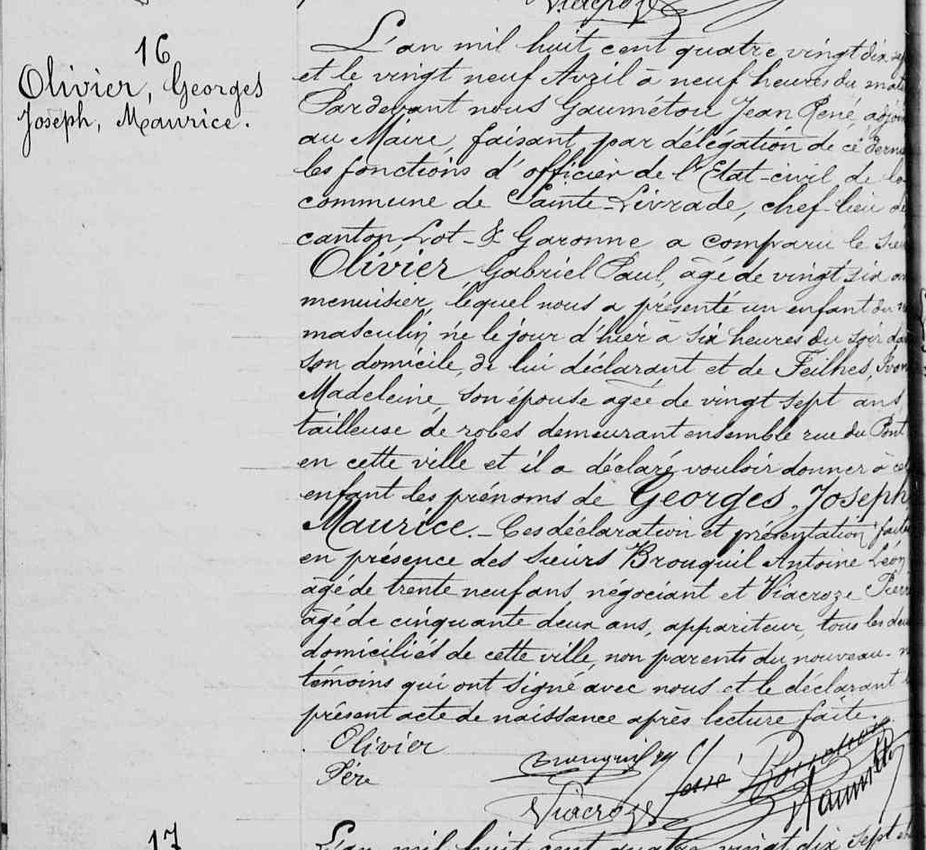 Viacroze
16
Olivier, Georges
Joseph, Maurice.
L'an mil huit cent quatre vingt dix sept
et le vingt neuf Avril à neuf heures du mat
Pardevant nous Gaumétou Jean René, adjoin
au Maire, faisant, par délégation de ce derni
les fonctions d'officier de l'Etat-civil de la
commune de Sainte-Livrade, chef-lieu de
canton Lot-&-Garonne a comparu le sieu
Olivier Gabriel Paul, âgé de vingt six an
menuisier, lequel nous a présenté un enfant du
masculin né le jour d'hier à six heures du soir da
son domicile, de lui déclarant et de Feilhes,
Madeleine, son épouse agée de vingt sept ans,
tailleuse de robes demeurant ensemble rue du Pont
en cette ville et il a déclaré vouloir donner à cet
enfant les prénoms de Georges, Joseph,
Maurice._ Ces déclaration et présentation faites
en présence des sieurs Brouquil Antoine Léon
âgé de trente neuf ans, négociant et Viacroze Pierre
âgé de cinquante deux ans, appariteur, tous les deu
domiciliés de cette ville, non parents du nouveau-n
témoins qui ont signé avec nous et le déclarant
présent acte de naissance après lecture faite.
Olivier
Père
Brouquil
Viacroze
17
L'an mil huit cent quatre vingt dix sept et